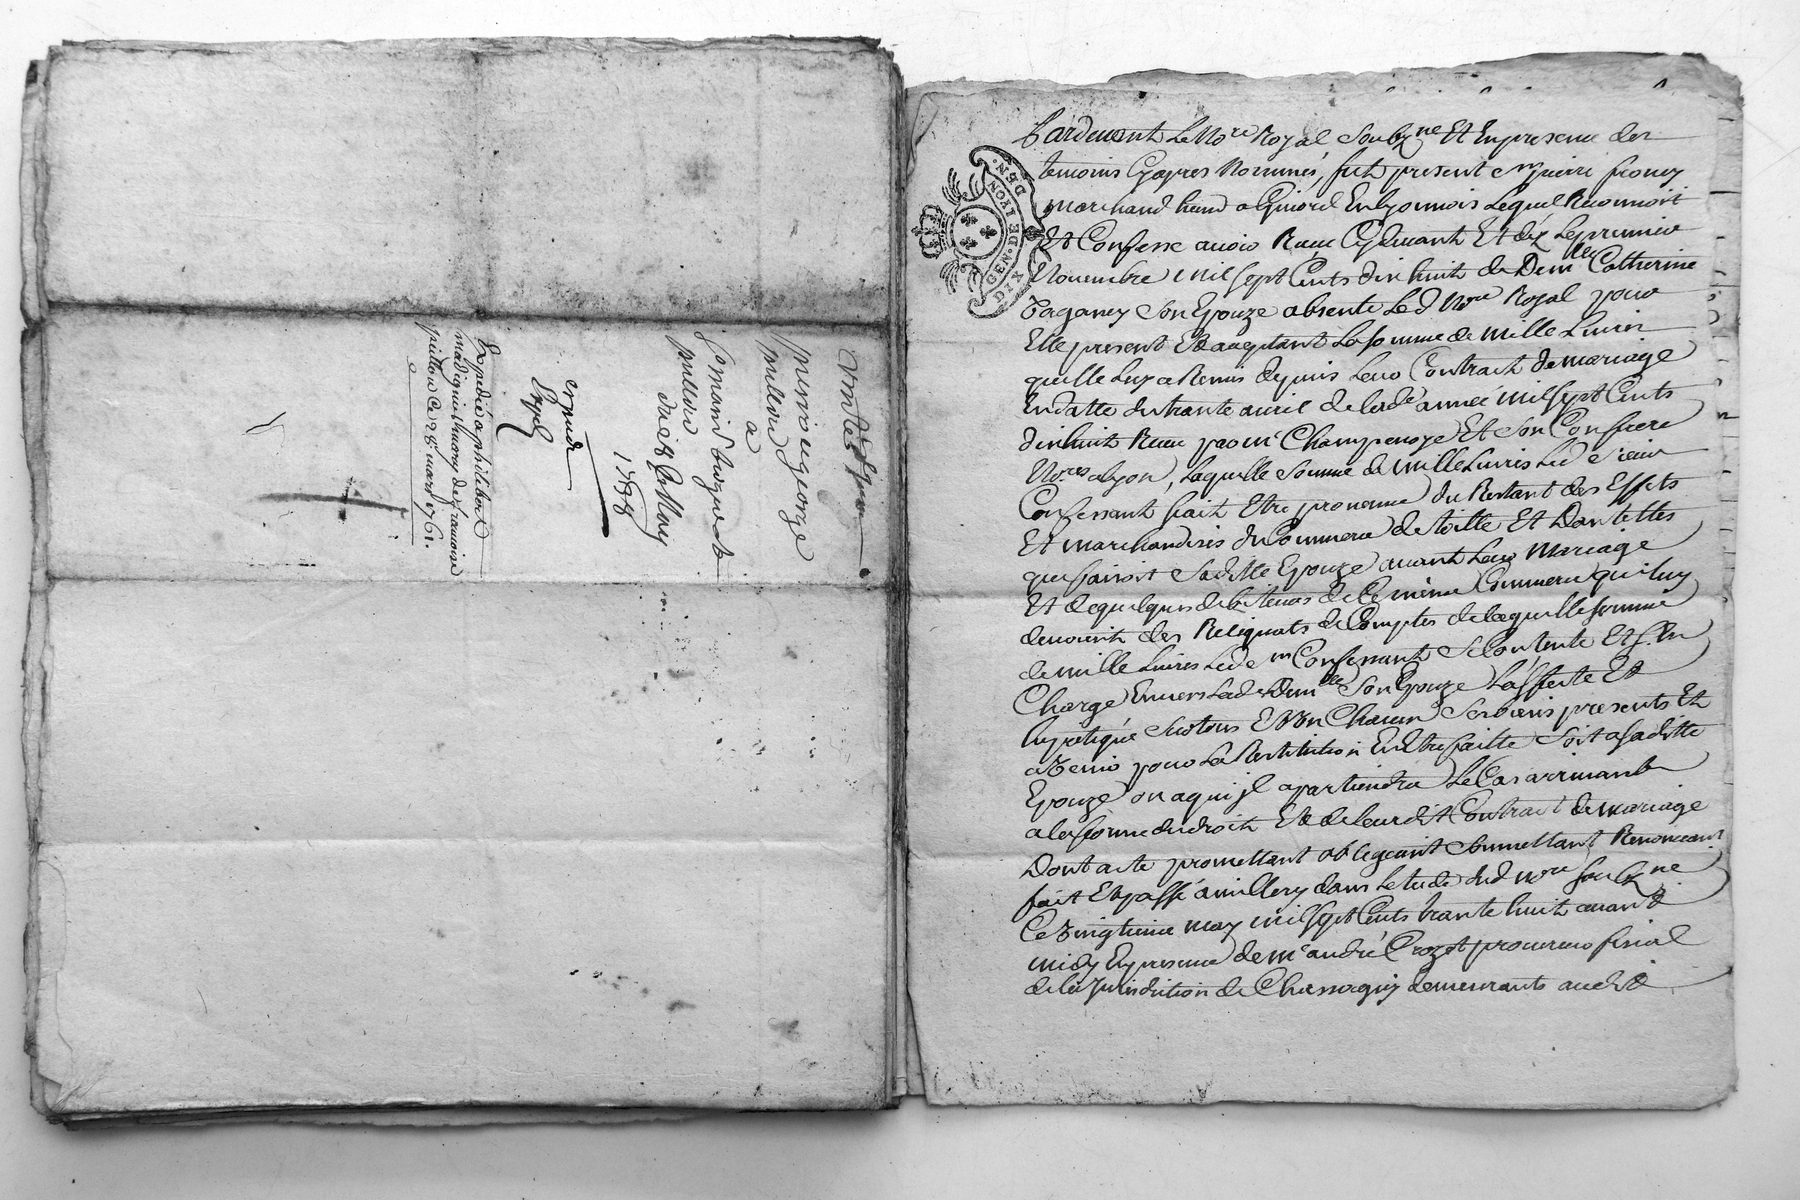 vente
pierre george
millery
a
millery
du 18e May
1738
Expedié a philibert
madignie mary de francoise
pitiou Ce 28e mars 1761.
GEN. DE LYON
DIX DEN.
Pardevant Le No.re Royal Soubz.né Et En presence des
temoins Cyapres Nommés, fut present Sr pierre
marchand a Givord En lyonnois Lequel Reconnoit
Et Confesse avoir Receu Cydevant Et dez Le premier
Novembre mil sept Cents dix huit de Dem.lle Catherine
Paganey Son Epouze absente Led Nore Royal pour
Elle present Et acceptant La somme de mille Livres
quelle Luy a Remis depuis Leur Contract de mariage
En datte du trante avril de lad.e année mil sept Cents
dix huit Receu par me Champenoye Et Son Confrere
No.res a lyon, Laquelle Somme de mille Livres Led Sieur
Confessant fait Etre provenue du Restant des Effets
Et marchandises du Commerce de toille Et Dantelles
que faisoit Sa ditte Epouze avant Leur Mariage
Et de quelques debiteurs de Ce même Commerce qui luy
devoient des Reliquats de Comptes de laquelle somme
de mille Livres Led Sr Confessant Se Contente Et S'En
Charge Envers Lad Dem.lle Son Epouze L'affecte Et
hypotéque Sur tous Et Un Chacun Ses biens presents Et
a Venir pour La Restitution En Etre faitte Soit a Sa ditte
Epouze ou a qui jl apartiendra Le Cas arrivant
a la forme du droit Et de leur dit Contract de mariage
Dont acte promettant obligeant Soumettant Renonceant
fait Et passé a millery dans L'etude dud Nore Soubz.né
Ce Vingtieme may mil sept Cents trante huit avant
midy En presence de me andré Crozet procureur fiscal
de la Jurisdiction de Chassagny demeurants audit